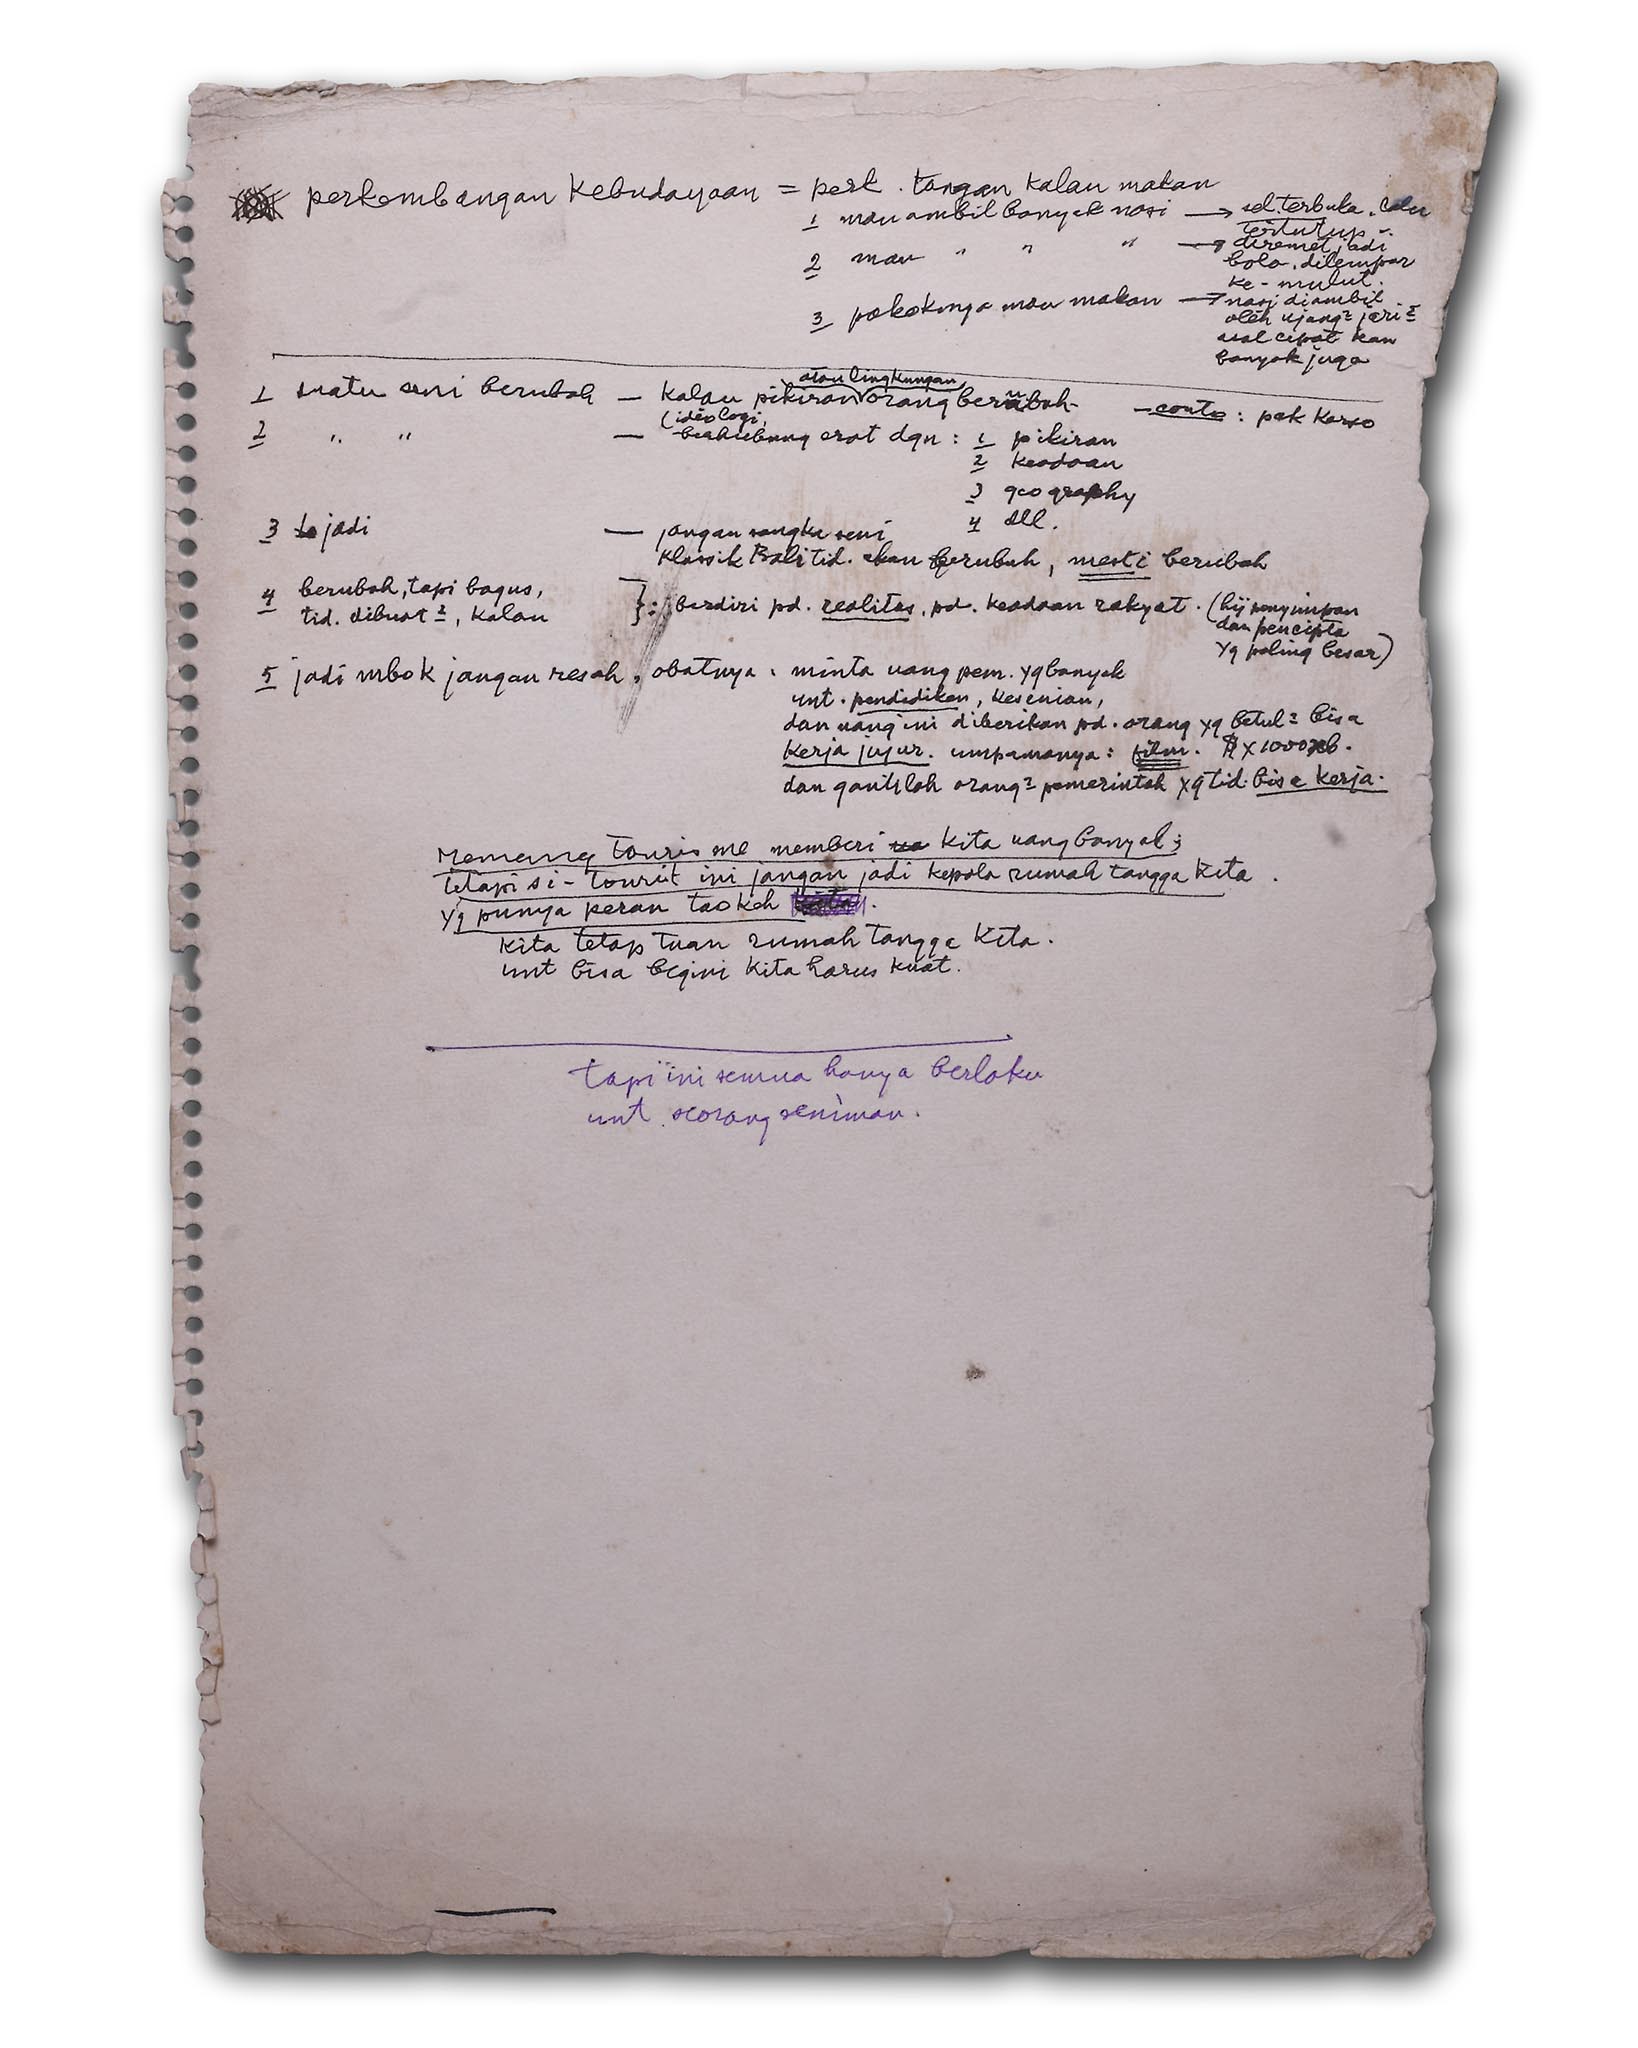 perkembangan kebudayaan = perk. tangan kalau makan
1 mau ambil banyak nasi → sel. terbuka. lalu
tertutup
2 mau " " " → diremet, jadi
bola. dilempar
ke-mulut.
3 pokoknya mau makan → nasi diambil
oleh ujang² jari²
asal cepat kan
banyak juga
1 suatu seni berubah — kalau pikiran atau lingkungan orang berubah. — conto : pak Karso
(ideologi,
2 " " — berhubung erat dgn : 1 pikiran
2 keadaan
3 geography
4 dll.
3 jadi — jangan sangka seni
klassik Bali tid. akan berubah, mesti berubah
4 berubah, tapi bagus,
tid. dibuat², kalau } : berdiri pd. realitas, pd. keadaan rakyat. (hij penyimpan
dan pencipta
yg paling besar)
5 jadi mbok jangan resah, obatnya : minta uang pem. yg banyak
unt. pendidikan, kesenian,
dan uang ini diberikan pd. orang yg betul² bisa
kerja jujur. umpamanya : film. x 1000
dan gantilah orang² pemerintah yg tid. bisa kerja.
Memang tourisme memberi kita uang banyak;
tetapi si-tourist ini jangan jadi kepala rumah tangga kita.
yg punya peran taokeh.
Kita tetap tuan rumah tangga kita.
unt bisa begini kita harus kuat.
tapi ini semua hanya berlaku
unt. seorang seniman.